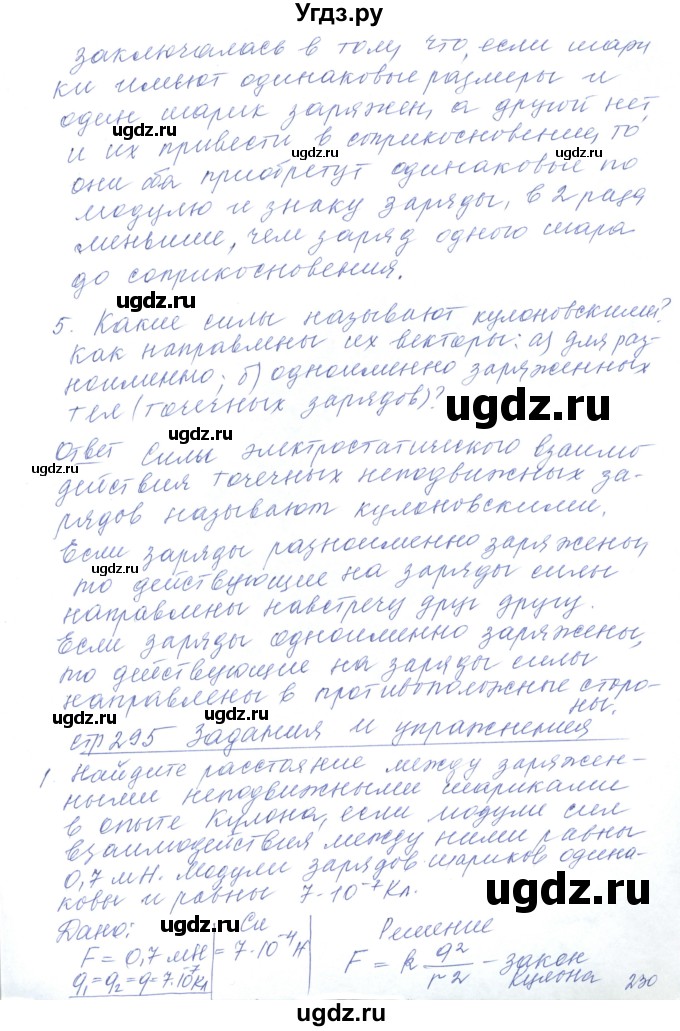 Угдз.ру
заключалась в том, что, если шари
ки имеют одинаковые размеры и
один шарик заряжен, а другой нет,
и их привести в соприкосновение, то
они оба приобретут одинаковые по
модулю и знаку заряды, в 2 раза
меньшие, чем заряд одного шара
до соприкосновения.
5. Какие силы называют кулоновскими?
Как направлены их векторы: а) для раз-
ноименно; б) одноименно заряженных
тел (точечных зарядов)?
Ответ Силы электростатического взаимо
действия точечных неподвижных за-
рядов называют кулоновскими.
Если заряды разноименно заряжены,
то действующие на заряды силы
направлены навстречу друг другу.
Если заряды одноименно заряжены,
то действующие на заряды силы
направлены в противоположные сторо-
ны.
стр 295 Задания и упражнения
1 Найдите расстояние между заряжен-
ными неподвижными шариками
в опыте Кулона, если модули сил
взаимодействия между ними равны
0,7 мН. Модули зарядов шариков одина-
ковы и равны 7·10⁻⁷ Кл.
Дано: Си Решение
F = 0,7 мН = 7·10⁻⁴ Н F = k q²/r² - закон
q₁ = q₂ = q = 7·10⁻⁷ Кл Кулона 230
ugdz.ru
ugdz.ru
ugdz.ru
ugdz.ru
ugdz.ru
ugdz.ru
ugdz.ru
ugdz.ru
ugdz.ru
ugdz.ru
ugdz.ru
ugdz.ru
ugdz.ru
ugdz.ru